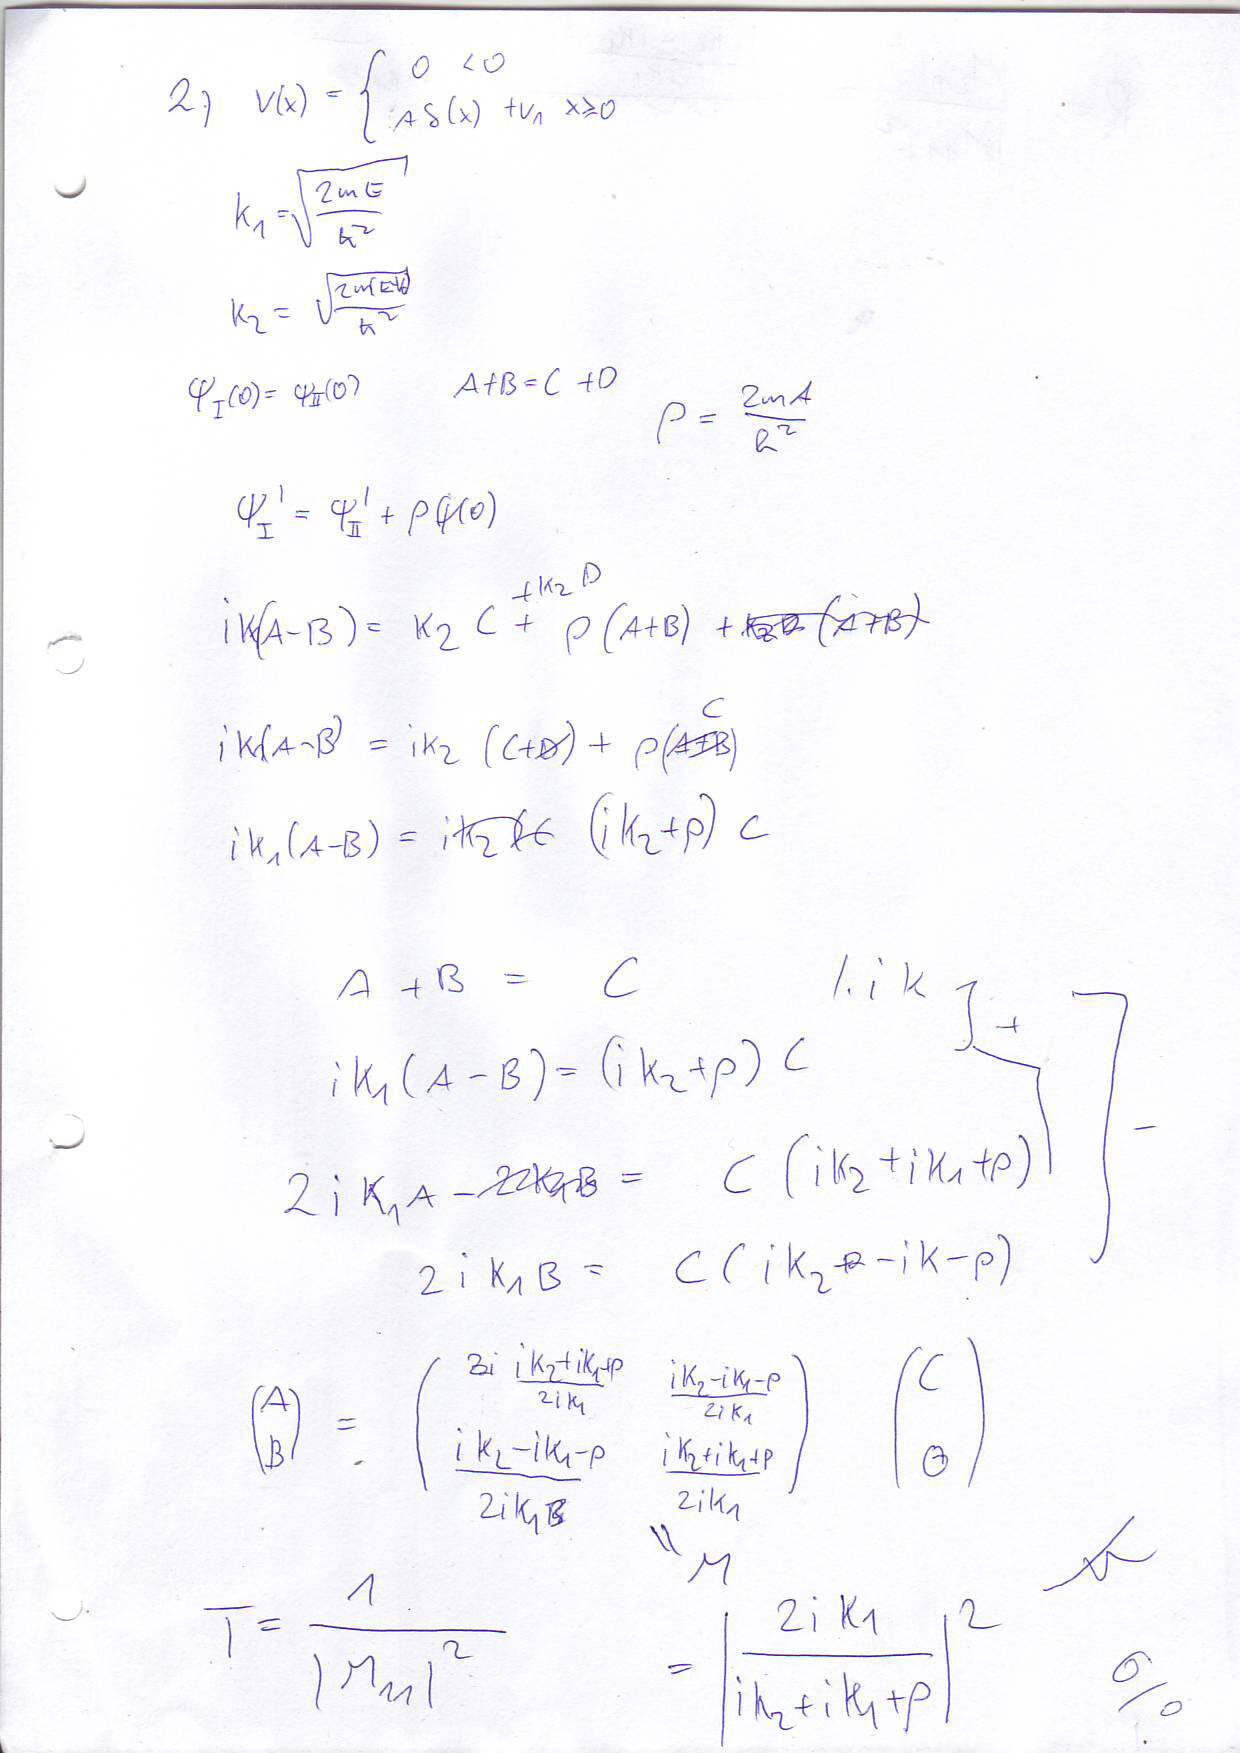 2) V(x) = { 0 <0
Aδ(x) +V₁ x≥0
k₁ = √(2mE/ħ²)
k₂ = √(2m(E-V₁)/ħ²)
ψ_I(0) = ψ_II(0) A+B = C+D
ρ = 2mA/ħ²
ψ_I' = ψ_II' + ρψ(0)
+k₂D
ik(A-B) = k₂C + ρ(A+B) +
C
ik₁(A-B) = ik₂ (C+D) + ρ(A+B)
ik₁(A-B) = ik₂ (ik₂+ρ) C
A + B = C /·ik ] +
ik₁(A-B) = (ik₂+ρ) C
2ik₁A - 2ik₁B = C (ik₂+ik₁+ρ) ] -
2ik₁B = C(ik₂ -ik-ρ)
(A B) = ( (ik₂+ik₁+ρ)/2ik₁ (ik₂-ik₁-ρ)/2ik₁
(ik₂-ik₁-ρ)/2ik₁B (ik₂+ik₁+ρ)/2ik₁ ) (C 0)
" M
T = 1/|M₁₁|² = |2ik₁/(ik₂+ik₁+ρ)|²